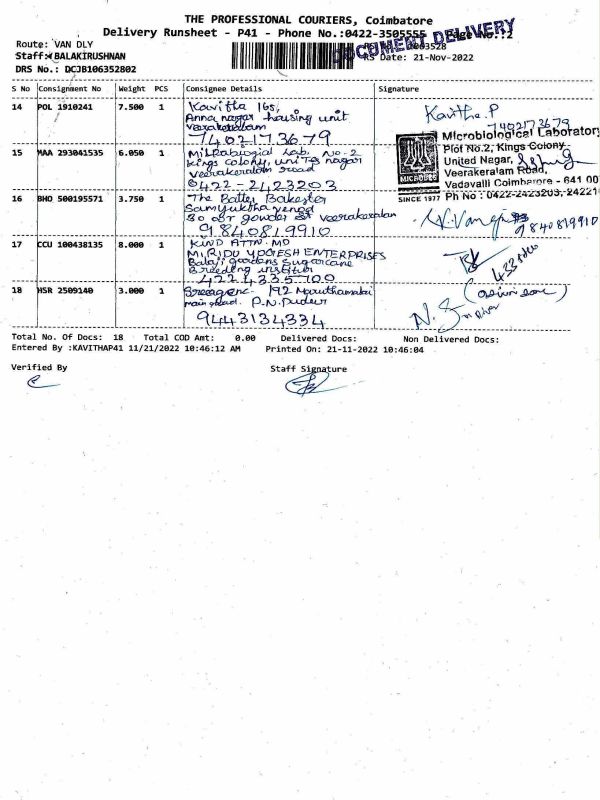 THE PROFESSIONAL COURIERS, Coimbatore
Delivery Runsheet - P41 - Phone No.:0422-3505555 Page No.:2
DOCUMENT DELIVERY
Route: VAN DLY
Staff: BALAKIRUSHNAN
RS Date: 21-Nov-2022
DRS No.: DCJB106352802
S No Consignment No Weight PCS Consignee Details Signature
14 POL 1910241 7.500 1 Kavitha 165,
Anna nagar housing unit
Veerakeralam
7402173679
Kavitha.P
7402173679
15 MAA 293041535 6.050 1
Kings colony, united nagar
Veerakeralam road
0422-2423203
Microbiological Laboratory
Plot No.2, Kings Colony
United Nagar,
Veerakeralam Road,
Vadavalli Coimbatore - 641 00
MICROBS
SINCE 1977 Ph No : 0422-2423203, 242210
16 BHO 500195571 3.750 1 The Batter Bakester
Samyuktha venod
80 dr gowder st veerakeralam
9840819910
9840819910
17 CCU 100438135 8.000 1 KIND ATTN. MD
MIRIDU YOGESH ENTERPRISES
Balaji gardens sugarcane
Breeding institute
4224335700
18 HSR 2509140 3.000 1
main road. P.N.Pudur
9443134334
Total No. Of Docs: 18 Total COD Amt: 0.00 Delivered Docs: Non Delivered Docs:
Entered By :KAVITHAP41 11/21/2022 10:46:12 AM Printed On: 21-11-2022 10:46:04
Verified By Staff Signature